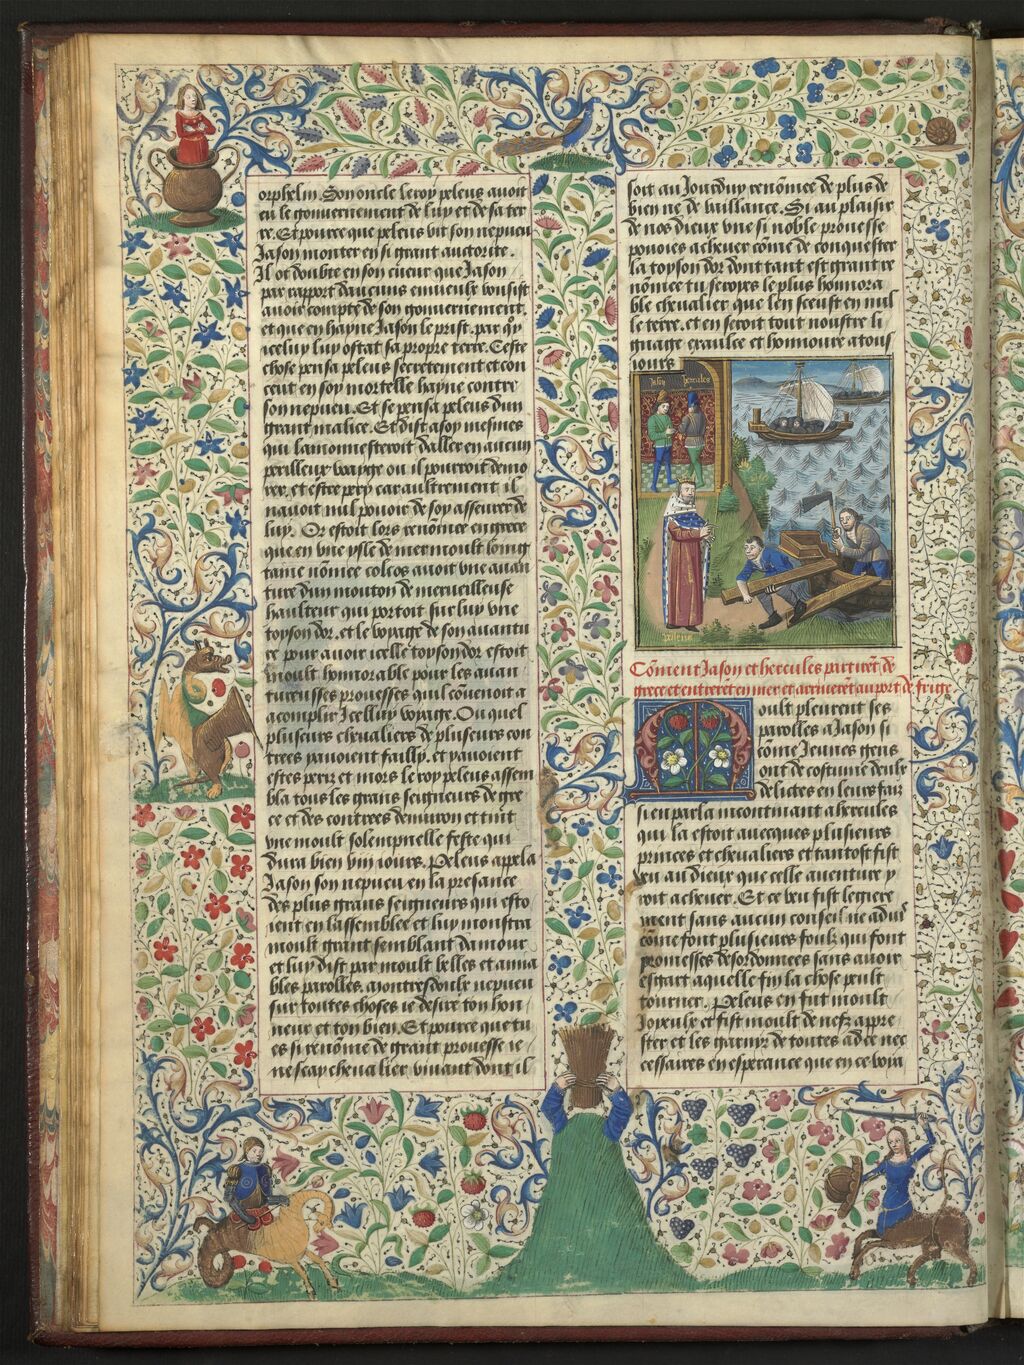 orphelin. Son oncle le roy peleus auoit
eu le gouuernement de luy et de sa ter
re. Et pource que peleus vit son nepueu
Jason monter en si grant auctorite.
Il ot doubte en son cueur que Jason
par rapport daucuns enuieulx voulsist
auoir compte de son gouuernement.
et que en hayne Jason le prist. par quoy
icelui luy ostast sa propre terre. Ceste
chose pensa peleus secretement et con
ceut en soy mortelle hayne contre
son nepueu. Et se pensa peleus dun
grant malice. Et dist a soy mesmes
quil lamonnesteroit daller en aucun
perilleux voyage ou il pourroit demo
rer. et estre pery car aultrement il
nauoit nul pouoir de soy asseurer de
luy. Or estoit lors renommee en grece
que en vne ysle de mer moult loing
taine nommee colcos auoit vne auan
ture dun mouton de merueilleuse
haulteur qui portoit sur luy vne
toyson dor. et le voyage de son auantu
re pour auoir icelle toyson dor estoit
moult honnorable pour les auan
tureusses prouesses quil conuenoit a
acomplir Icelluy voyage. Ou quel
plusieurs cheualiers de plusieurs con
trees y auoient failly. et y auoient
estes periz et mors le roy peleus assem
bla tous les grans seigneurs de gre
ce et des contrees denuiron et tint
vne moult solempnelle feste qui
dura bien viii iours. Peleus apela
Jason son nepueu en la presance
des plus grans seigneurs qui esto
ient en lassemblee et luy monstra
moult grant semblant damour
et luy dist par moult belles et ama
bles parolles. a
sur toutes choses ie desire ton hon
neur et ton bien. Et pource que tu
es si renomme de grant prouesse ie
ne scay cheualier viuant dont il
soit au Jourduy renommee de plus de
bien ne de vaillance. Si au plaisir
de nos dieux vne si noble prouesse
pouoies acheuer comme de conquester
la toyson dor dont tant est grant re
nommee tu seroyes le plus honnora
ble cheualier que len sceust en nul
le terre. et en seroit tout noustre li
gnage exaulce et honnoure a tous
iours
Jason hercules
peleus
Comment Jason et hercules partirent de
grece et entrerent en mer et arriuerent au port de frige
Moult pleurent ses
parolles a Jason si
comme Jeunes gens
ont de costume deulx
delictes en leurs faiz
si en parla incontinant a hercules
qui la estoit auecques plusieurs
princes et cheualiers et tantost fist
veu au dieux que celle auenture y
roit acheuer. Et ce veu fist legiere
ment sans aucun conseil ne aduis
comme font plusieurs foulz qui font
promesses desordonnees sans auoir
esgart a quelle fin la chose peult
tourner. Peleus en fut moult
Joyeulx et fist moult de nefz appre
ster et les garnyr de toutes ad ce nec
cessaires en esperance que en ce voia